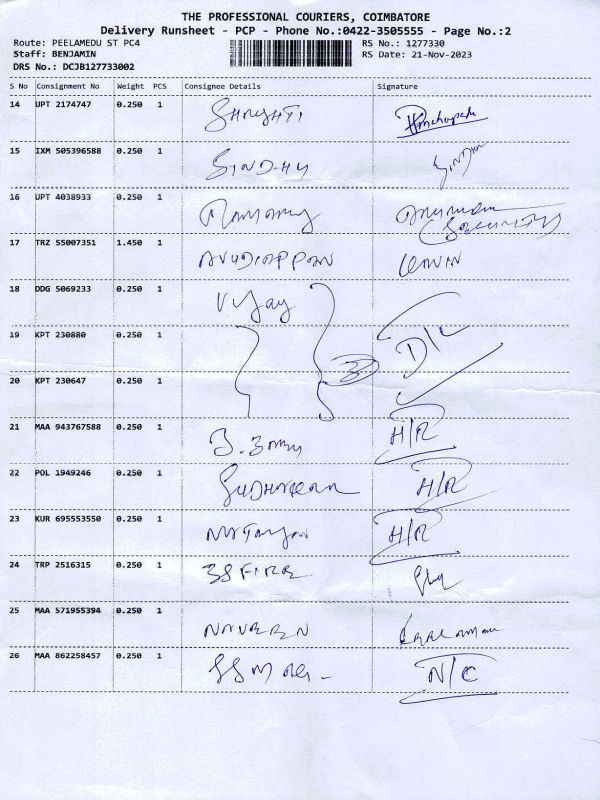 THE PROFESSIONAL COURIERS, COIMBATORE
Delivery Runsheet - PCP - Phone No.:0422-3505555 - Page No.:2
Route: PEELAMEDU ST PC4 RS No.: 1277330
Staff: BENJAMIN RS Date: 21-Nov-2023
DRS No.: DCJB127733002
S No Consignment No Weight PCS Consignee Details Signature
14 UPT 2174747 0.250 1
15 IXM 505396588 0.250 1 SINDHU SINDHU
16 UPT 4038933 0.250 1 (SECURITY)
17 TRZ 55007351 1.450 1 AVUDIAPPAN
18 DDG 5069233 0.250 1 Vijay
19 KPT 230880 0.250 1 3 D/L
20 KPT 230647 0.250 1
21 MAA 943767588 0.250 1 H/R
22 POL 1949246 0.250 1 H/R
23 KUR 695553550 0.250 1 H/R
24 TRP 2516315 0.250 1
25 MAA 571955394 0.250 1 NAVEEN
26 MAA 862258457 0.250 1 N/C